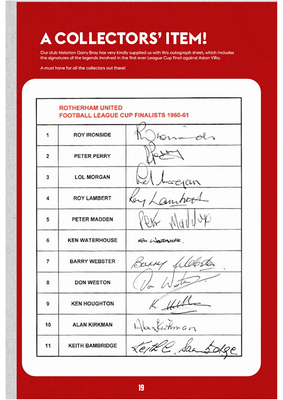 A COLLECTORS' ITEM!
Our club historian Gerry Bray has very kindly supplied us with this autograph sheet, which includes
the signatures of the legends involved in the first ever League Cup final against Aston Villa.
A must have for all the collectors out there!
ROTHERHAM UNITED
FOOTBALL LEAGUE CUP FINALISTS 1960-61
1 ROY IRONSIDE R. Ironside
2 PETER PERRY P Perry
3 LOL MORGAN Lol Morgan
4 ROY LAMBERT Roy Lambert
5 PETER MADDEN Peter Madden
6 KEN WATERHOUSE Ken Waterhouse
7 BARRY WEBSTER Barry Webster
8 DON WESTON Don Weston
9 KEN HOUGHTON K.
10 ALAN KIRKMAN Alan Kirkman
11 KEITH BAMBRIDGE Keith
19